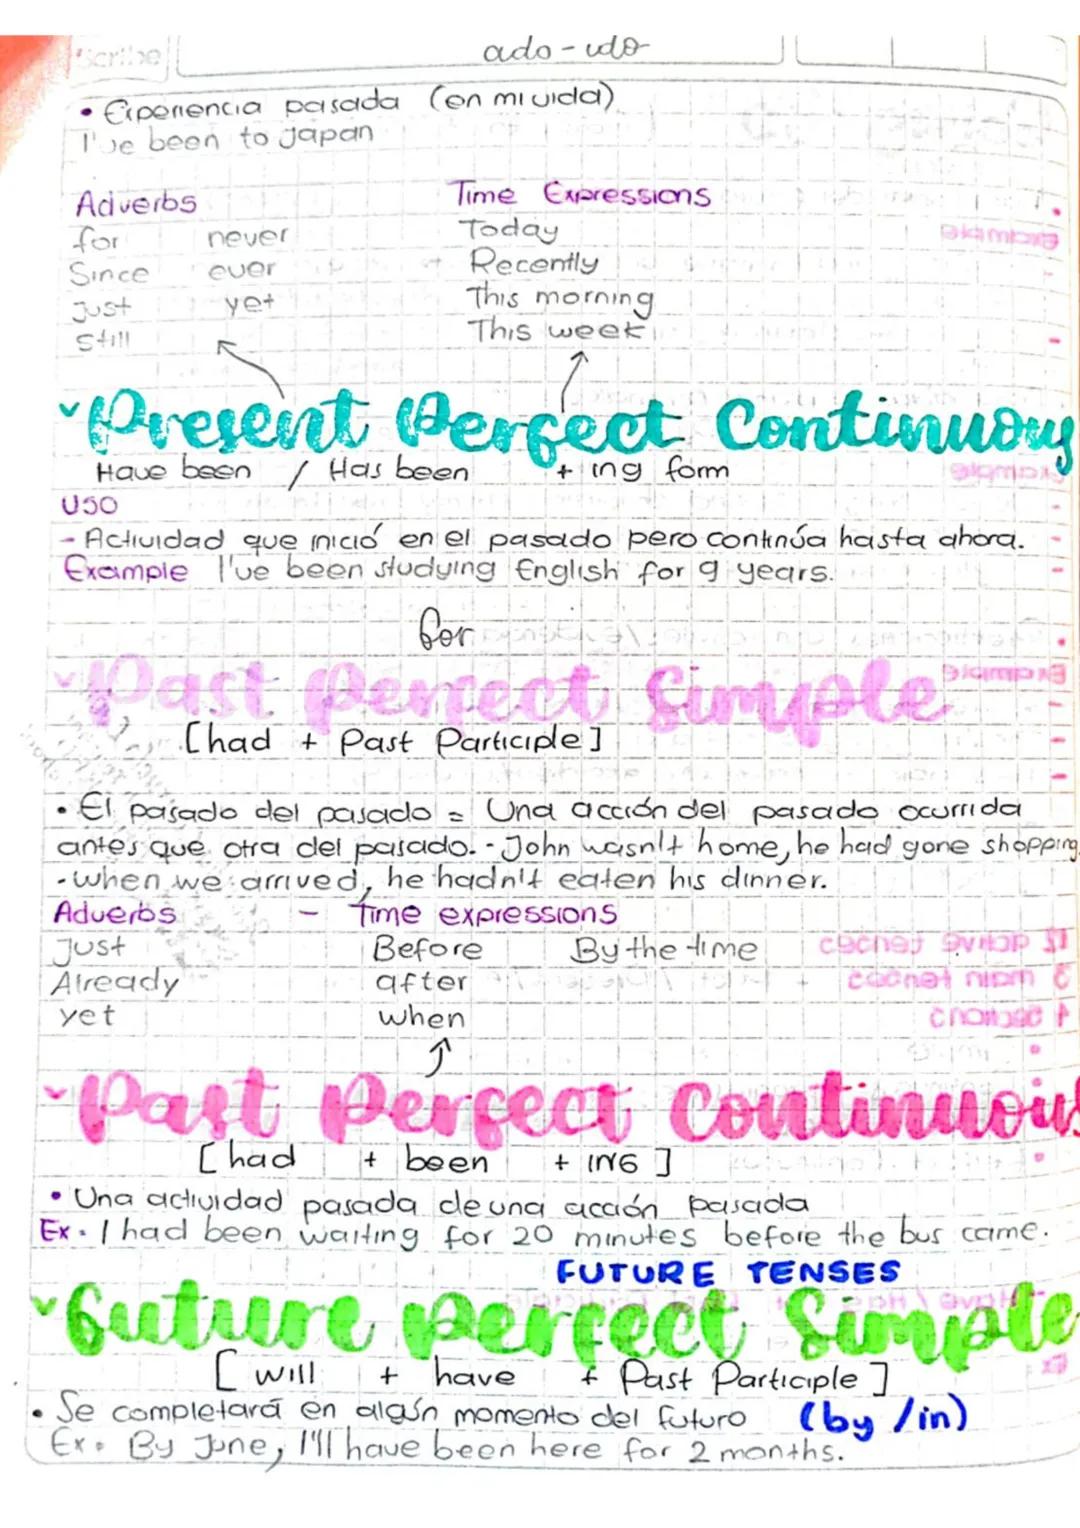 Scribe
ado - ido
• Experiencia pasada (en mi vida)
I've been to Japan
Adverbs Time Expressions
for never Today
Since ever Recently
Just yet This morning
Still This week
Present Perfect Continuous
Have been / Has been + ing form
USO
- Actividad que inició en el pasado pero continúa hasta ahora.
Example I've been studying English for 9 years.
for
Past Perfect Simple
[had + Past Participle]
• El pasado del pasado = Una acción del pasado ocurrida
antes que otra del pasado. - John wasn't home, he had gone shopping.
- When we arrived, he hadn't eaten his dinner.
Adverbs - Time expressions
Just Before By the time
Already after
yet when
Past Perfect Continuous
[had + been + ING]
• Una actividad pasada de una acción pasada
Ex. I had been waiting for 20 minutes before the bus came.
FUTURE TENSES
Future Perfect Simple
[will + have + Past Participle]
• Se completará en algún momento del futuro (by /in)
Ex. By June, I'll have been here for 2 months.